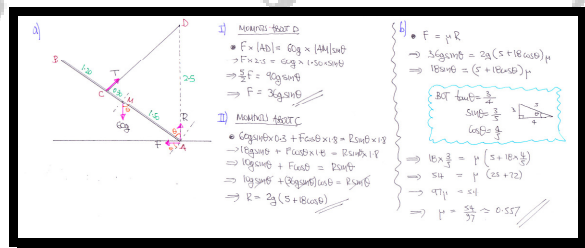 a)
D
B
1.20
T
C
0.30
M
60g
1.50
2.5
R
θ
F
A
I) MOMENTS ABOUT D
• F × |AD| = 60g × |AM| sinθ
⇒ F × 2.5 = 60g × 1.50 × sinθ
⇒ 5/2 F = 90g sinθ
⇒ F = 36g sinθ
II) MOMENTS ABOUT C
• 60g sinθ × 0.3 + F cosθ × 1.8 = R sinθ × 1.8
⇒ 18g sinθ + F cosθ × 1.8 = R sinθ × 1.8
⇒ 10g sinθ + F cosθ = R sinθ
⇒ 10g sinθ + (36g sinθ) cosθ = R sinθ
⇒ R = 2g (5 + 18cosθ)
b) • F = μR
⇒ 36g sinθ = 2g (5 + 18cosθ) μ
⇒ 18 sinθ = (5 + 18cosθ) μ
BUT tanθ = 3/4
sinθ = 3/5
cosθ = 4/5
3
5
θ
4
⇒ 18 × 3/5 = μ (5 + 18 × 4/5)
⇒ 54 = μ (25 + 72)
⇒ 97μ = 54
⇒ μ = 54/97 ≈ 0.557